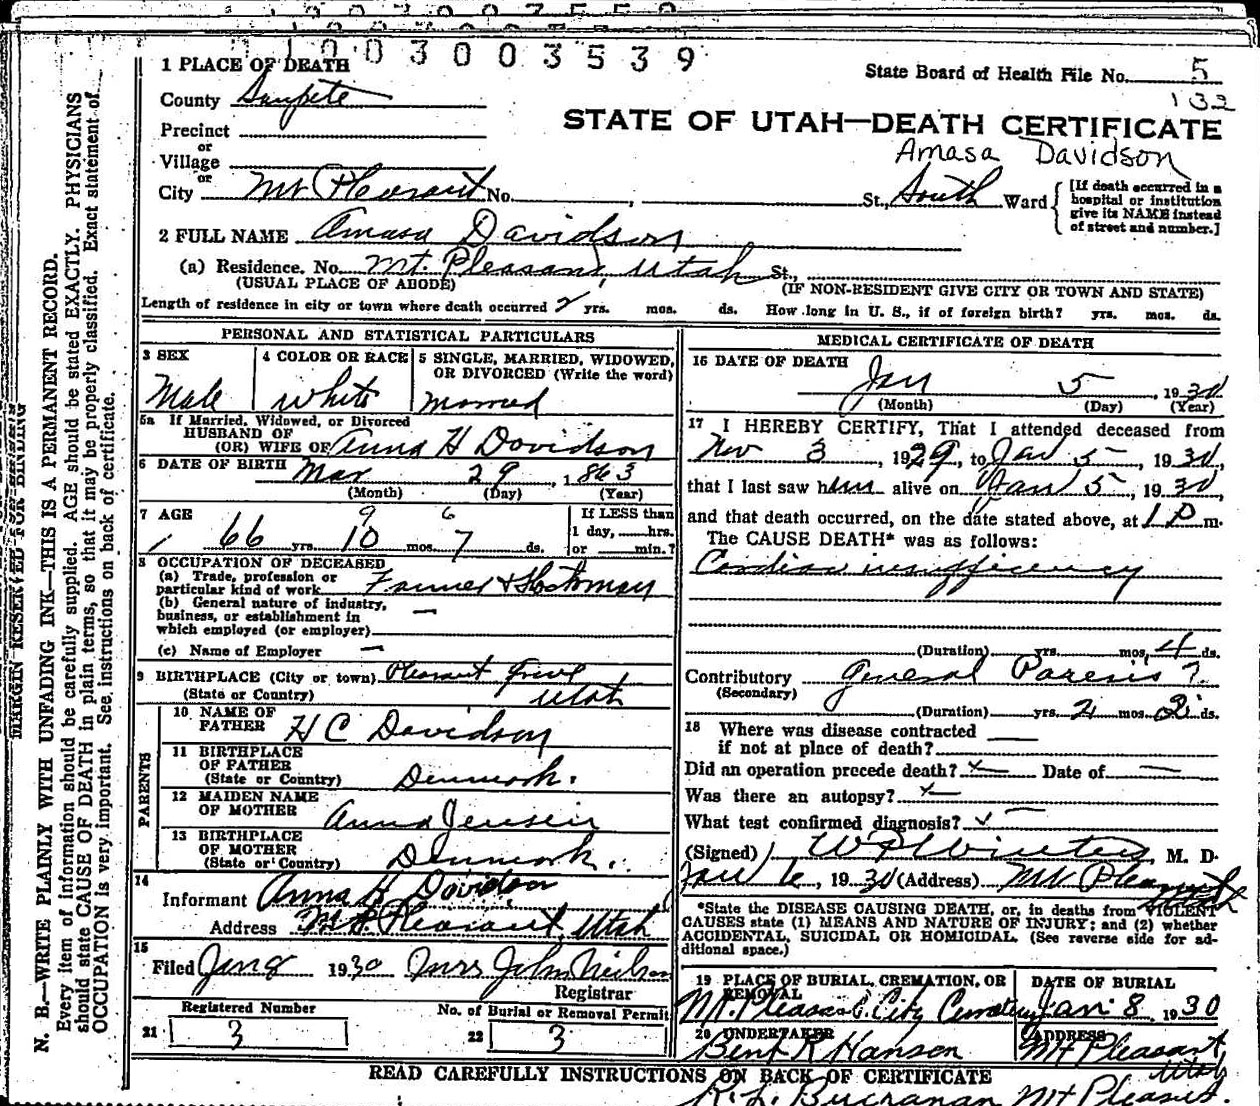 1003003539
1 PLACE OF DEATH
State Board of Health File No. 5
132
County Sanpete
STATE OF UTAH—DEATH CERTIFICATE
Precinct
or
Amasa Davidson
Village
or
City Mt Pleasant No. , St., South Ward
[If death occurred in a hospital or institution give its NAME instead of street and number.]
2 FULL NAME Amasa Davidson
(a) Residence. No. Mt. Pleasant, Utah St.,
(USUAL PLACE OF ABODE) (IF NON-RESIDENT GIVE CITY OR TOWN AND STATE)
Length of residence in city or town where death occurred yrs. mos. ds. How long in U. S., if of foreign birth? yrs. mos. ds.
PERSONAL AND STATISTICAL PARTICULARS
3 SEX
Male
4 COLOR OR RACE
White
5 SINGLE, MARRIED, WIDOWED, OR DIVORCED (Write the word)
Married
5a If Married, Widowed, or Divorced
HUSBAND OF
(OR) WIFE OF Anna H Davidson
6 DATE OF BIRTH Mar 29, 1863
(Month) (Day) (Year)
7 AGE
9 6
66 yrs. 10 mos. 7 ds.
If LESS than
1 day, hrs.
or min.?
8 OCCUPATION OF DECEASED
(a) Trade, profession or
particular kind of work Farmer & Stockman
(b) General nature of industry,
business, or establishment in
which employed (or employer) —
(c) Name of Employer —
9 BIRTHPLACE (City or town) Pleasant Grove
(State or Country) Utah
PARENTS
10 NAME OF
FATHER H C Davidson
11 BIRTHPLACE
OF FATHER
(State or Country) Denmark.
12 MAIDEN NAME
OF MOTHER Anna Jensen
13 BIRTHPLACE
OF MOTHER
(State or Country) Denmark.
14
Informant Anna H Davidson
Address Mt. Pleasant, Utah
15
Filed Jan 8 1930 Mrs John Neilson
Registrar
Registered Number No. of Burial or Removal Permit
21 3 22 3
MEDICAL CERTIFICATE OF DEATH
16 DATE OF DEATH
Jan 5, 1930
(Month) (Day) (Year)
17 I HEREBY CERTIFY, That I attended deceased from
Nov 3, 1929, to Jan 5, 1930,
that I last saw him alive on Jan 5, 1930,
and that death occurred, on the date stated above, at 1 P m.
The CAUSE DEATH* was as follows:
Cardiac insufficiency
(Duration) yrs. mos. 4 ds.
Contributory General Paresis?
(Secondary)
(Duration) yrs. 2 mos. 2 ds.
18 Where was disease contracted
if not at place of death?
Did an operation precede death? Date of —
Was there an autopsy?
What test confirmed diagnosis?
(Signed) W P Winters, M. D.
Jan 6, 1930 (Address) Mt Pleasant
Utah
*State the DISEASE CAUSING DEATH, or, in deaths from VIOLENT
CAUSES state (1) MEANS AND NATURE OF INJURY; and (2) whether
ACCIDENTAL, SUICIDAL OR HOMICIDAL. (See reverse side for ad-
ditional space.)
19 PLACE OF BURIAL, CREMATION, OR REMOVAL
Mt. Pleasant City Cemetery
DATE OF BURIAL
Jan. 8 1930
20 UNDERTAKER
Bent R Hanson
ADDRESS
Mt Pleasant
Utah
READ CAREFULLY INSTRUCTIONS ON BACK OF CERTIFICATE
R. L. Buchanan Mt Pleasant.
MARGIN RESERVED FOR BINDING
N. B.—WRITE PLAINLY WITH UNFADING INK—THIS IS A PERMANENT RECORD.
Every item of information should be carefully supplied. AGE should be stated EXACTLY. PHYSICIANS
should state CAUSE OF DEATH in plain terms, so that it may be properly classified. Exact statement of
OCCUPATION is very important. See instructions on back of certificate.